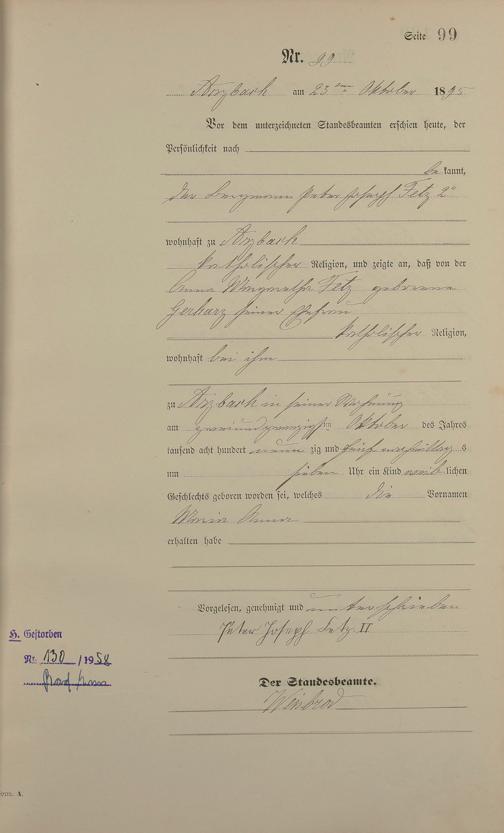 Seite 99
Nr. 99
Arzbach am 23ten Oktober 1895
Vor dem unterzeichneten Standesbeamten erschien heute, der
Persönlichkeit nach
be kannt,
der Bergmann Peter Joseph Fetz 2r
wohnhaft zu Arzbach
katholischer Religion, und zeigte an, daß von der
Anna Margaretha Fetz geborene
Gerharz seiner Ehefrau
katholischer Religion,
wohnhaft bei ihm
zu Arzbach in seiner Wohnung
am zweiundzwanzigsten Oktober des Jahres
tausend acht hundert neun zig und fünf nachmittag s
um sieben Uhr ein Kind weib lichen
Geschlechts geboren worden sei, welches die Vornamen
Maria Anna
erhalten habe
Vorgelesen, genehmigt und unterschrieben
Peter Joseph Fetz II
H. Gestorben
Nr. 130 / 1958
Der Standesbeamte.